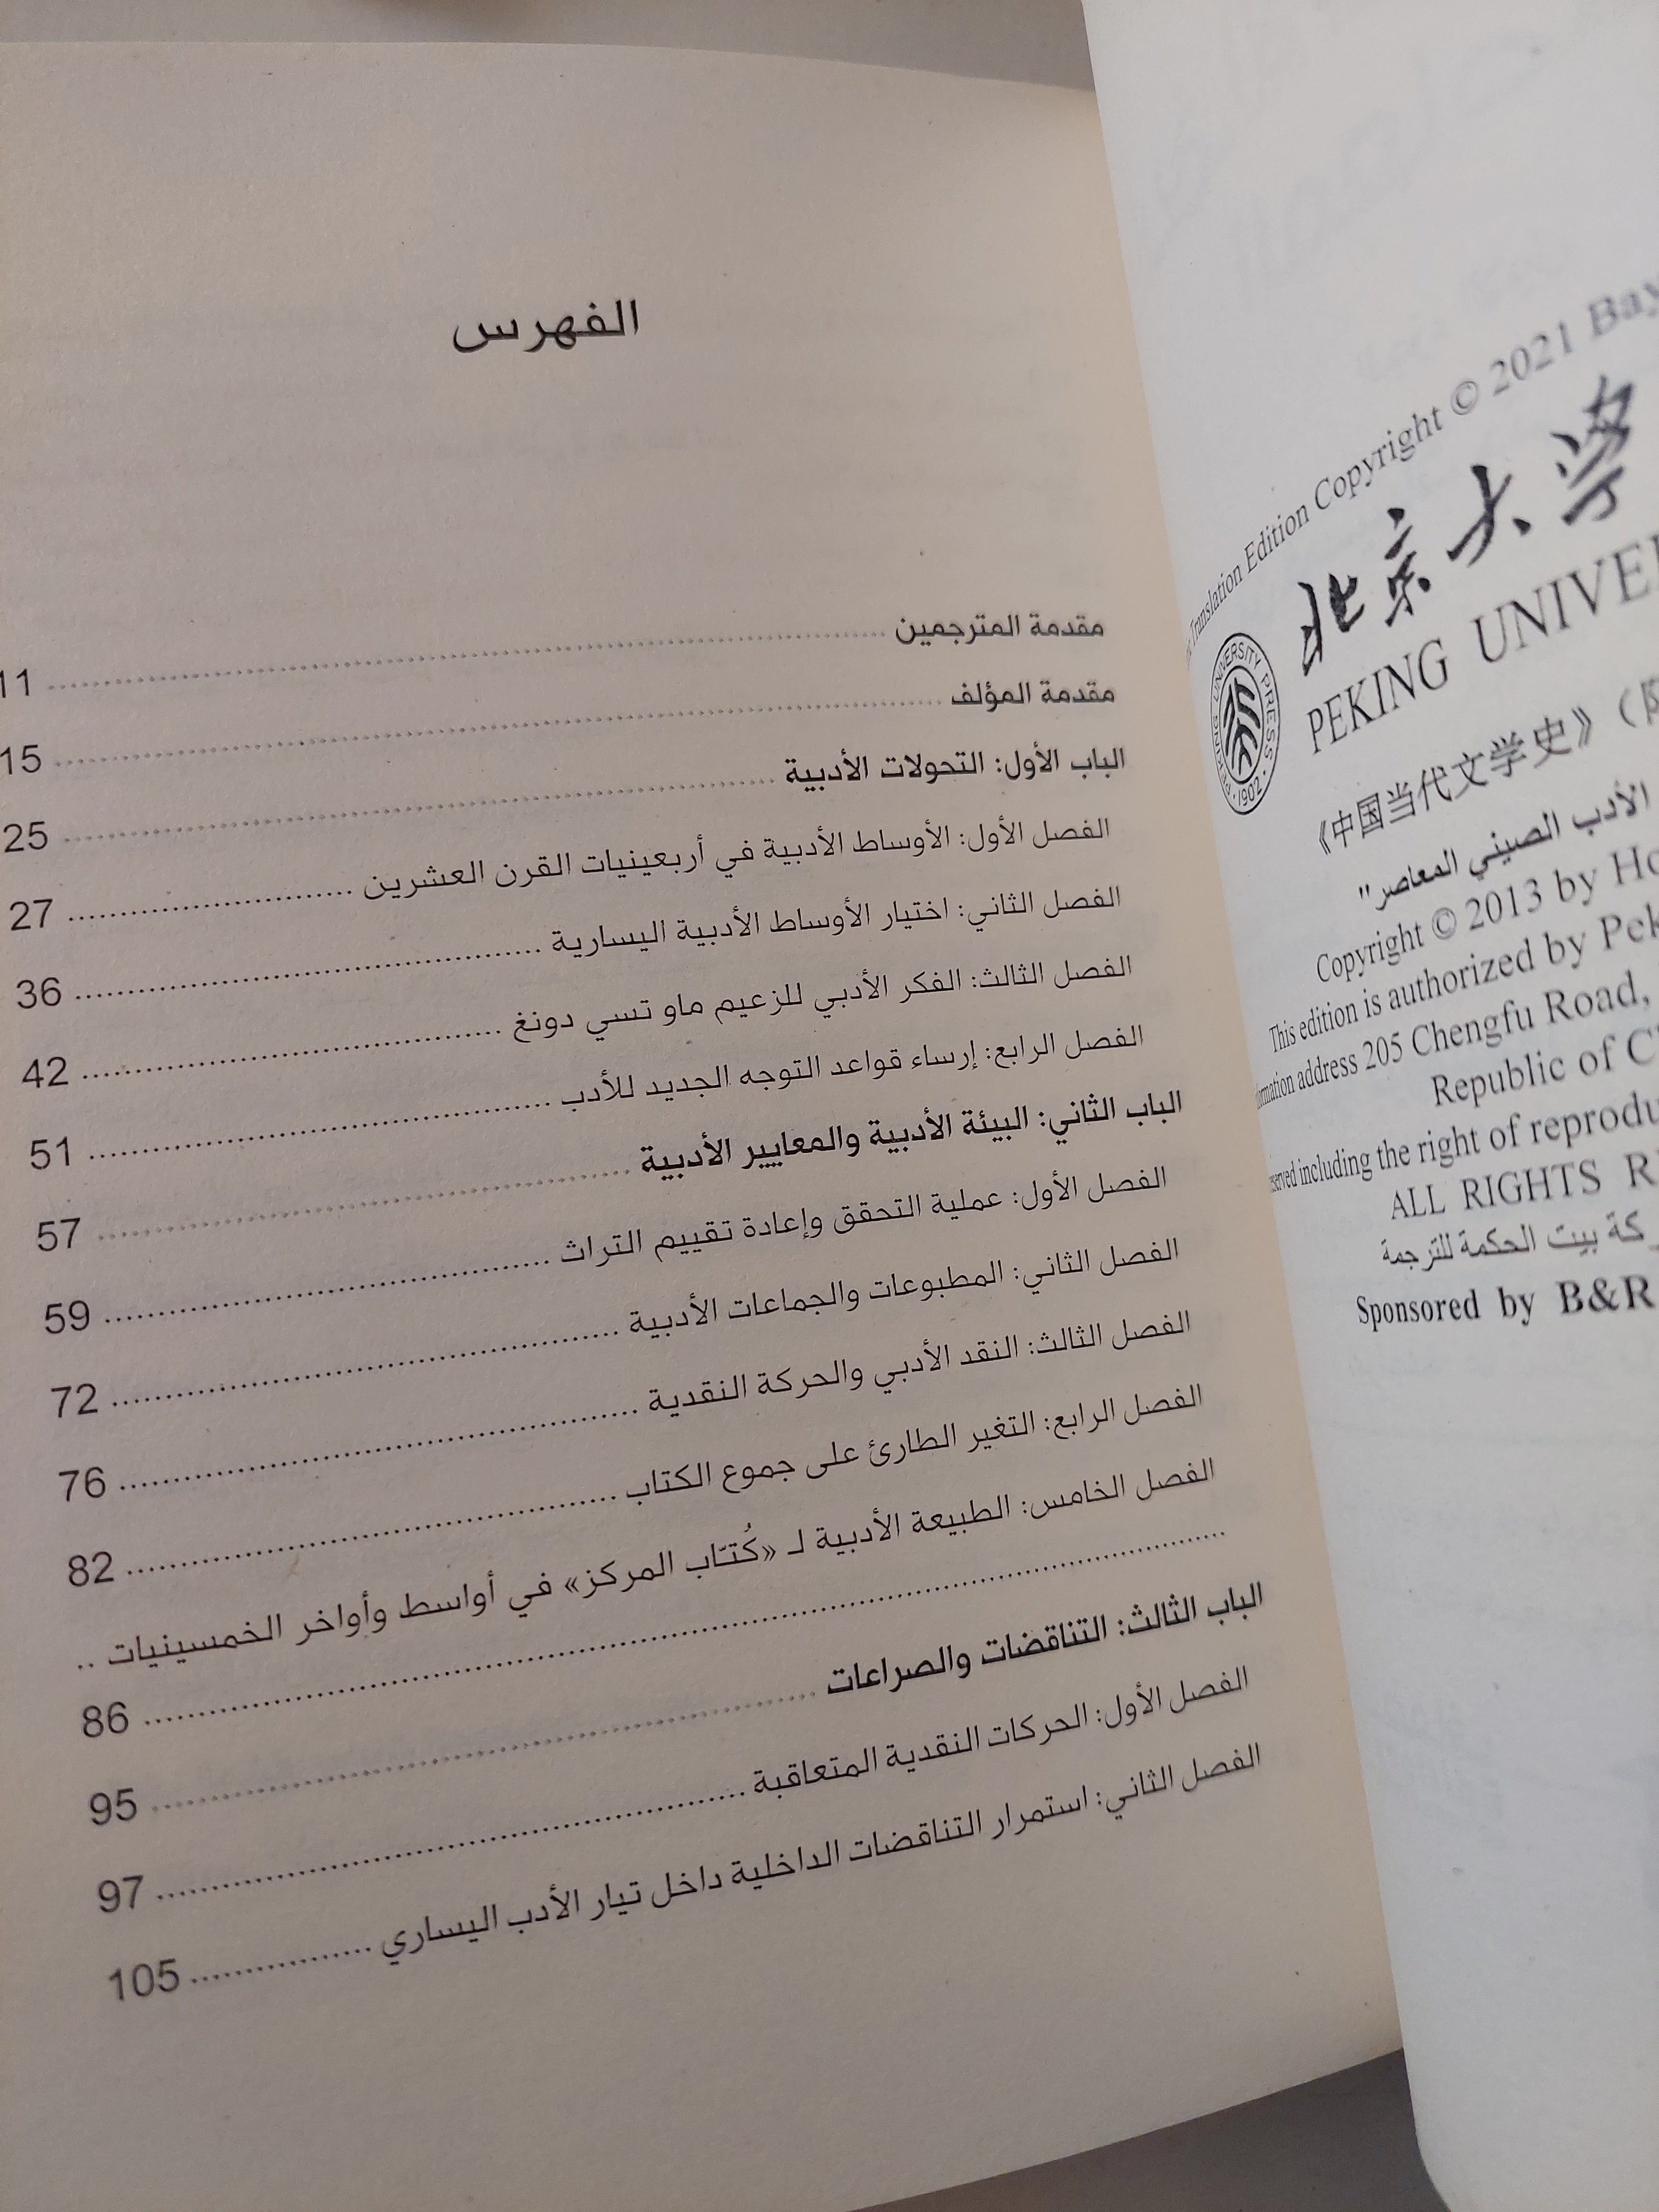 الفهرس
مقدمة المترجمين ........ 11
مقدمة المؤلف ........ 15
الباب الأول: التحولات الأدبية ........ 25
الفصل الأول: الأوساط الأدبية في أربعينيات القرن العشرين ........ 27
الفصل الثاني: اختيار الأوساط الأدبية اليسارية ........ 36
الفصل الثالث: الفكر الأدبي للزعيم ماو تسي دونغ ........ 42
الفصل الرابع: إرساء قواعد التوجه الجديد للأدب ........ 51
الباب الثاني: البيئة الأدبية والمعايير الأدبية ........ 57
الفصل الأول: عملية التحقق وإعادة تقييم التراث ........ 59
الفصل الثاني: المطبوعات والجماعات الأدبية ........ 72
الفصل الثالث: النقد الأدبي والحركة النقدية ........ 76
الفصل الرابع: التغير الطارئ على جموع الكتاب ........ 82
الفصل الخامس: الطبيعة الأدبية لـ «كُتّاب المركز» في أواسط وأواخر الخمسينيات ..
........ 86
الباب الثالث: التناقضات والصراعات ........ 95
الفصل الأول: الحركات النقدية المتعاقبة ........ 97
الفصل الثاني: استمرار التناقضات الداخلية داخل تيار الأدب اليساري ........ 105
Translation Edition Copyright © 2021 Bay
北京大学
PEKING UNIVERSITY PRESS · 1902 ·
PEKING UNIVE
《中国当代文学史》（
الأدب الصيني المعاصر"
Copyright © 2013 by Ho
This edition is authorized by Pek
address 205 Chengfu Road,
Republic of C
including the right of reprodu
ALL RIGHTS R
بيت الحكمة للترجمة
Sponsored by B&R